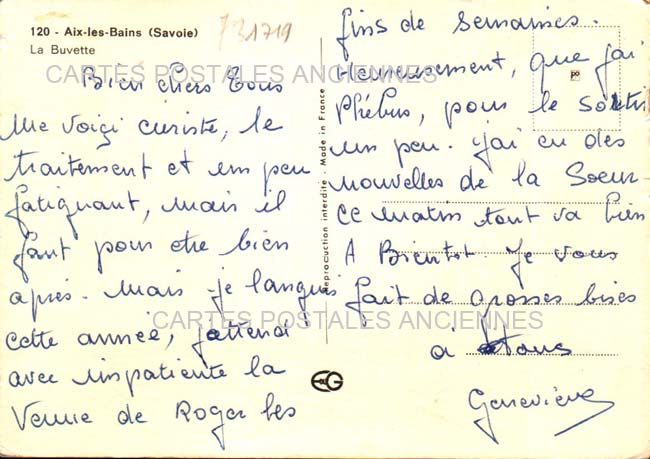 120 - Aix-les-Bains (Savoie)
La Buvette
731719
CARTES POSTALES ANCIENNES
Bien chers Tous
Me voiçi curiste, le
traitement et un peu
fatiguant, mais il
faut pour etre bien
après. Mais je languis
cette année, j'attend
avec impatiente la
Venue de Roger les
CARTES POSTALES ANCIENNES
Reproduction interdite - Made in France
fins de semaines.
Heureusement, que j'ai
Phébus, pour le sortir
un peu. j'ai eu des
nouvelles de la Soeur
ce matin tout va bien
A Bientôt. Je vous
fait de grosses bises
à tous
Geneviève